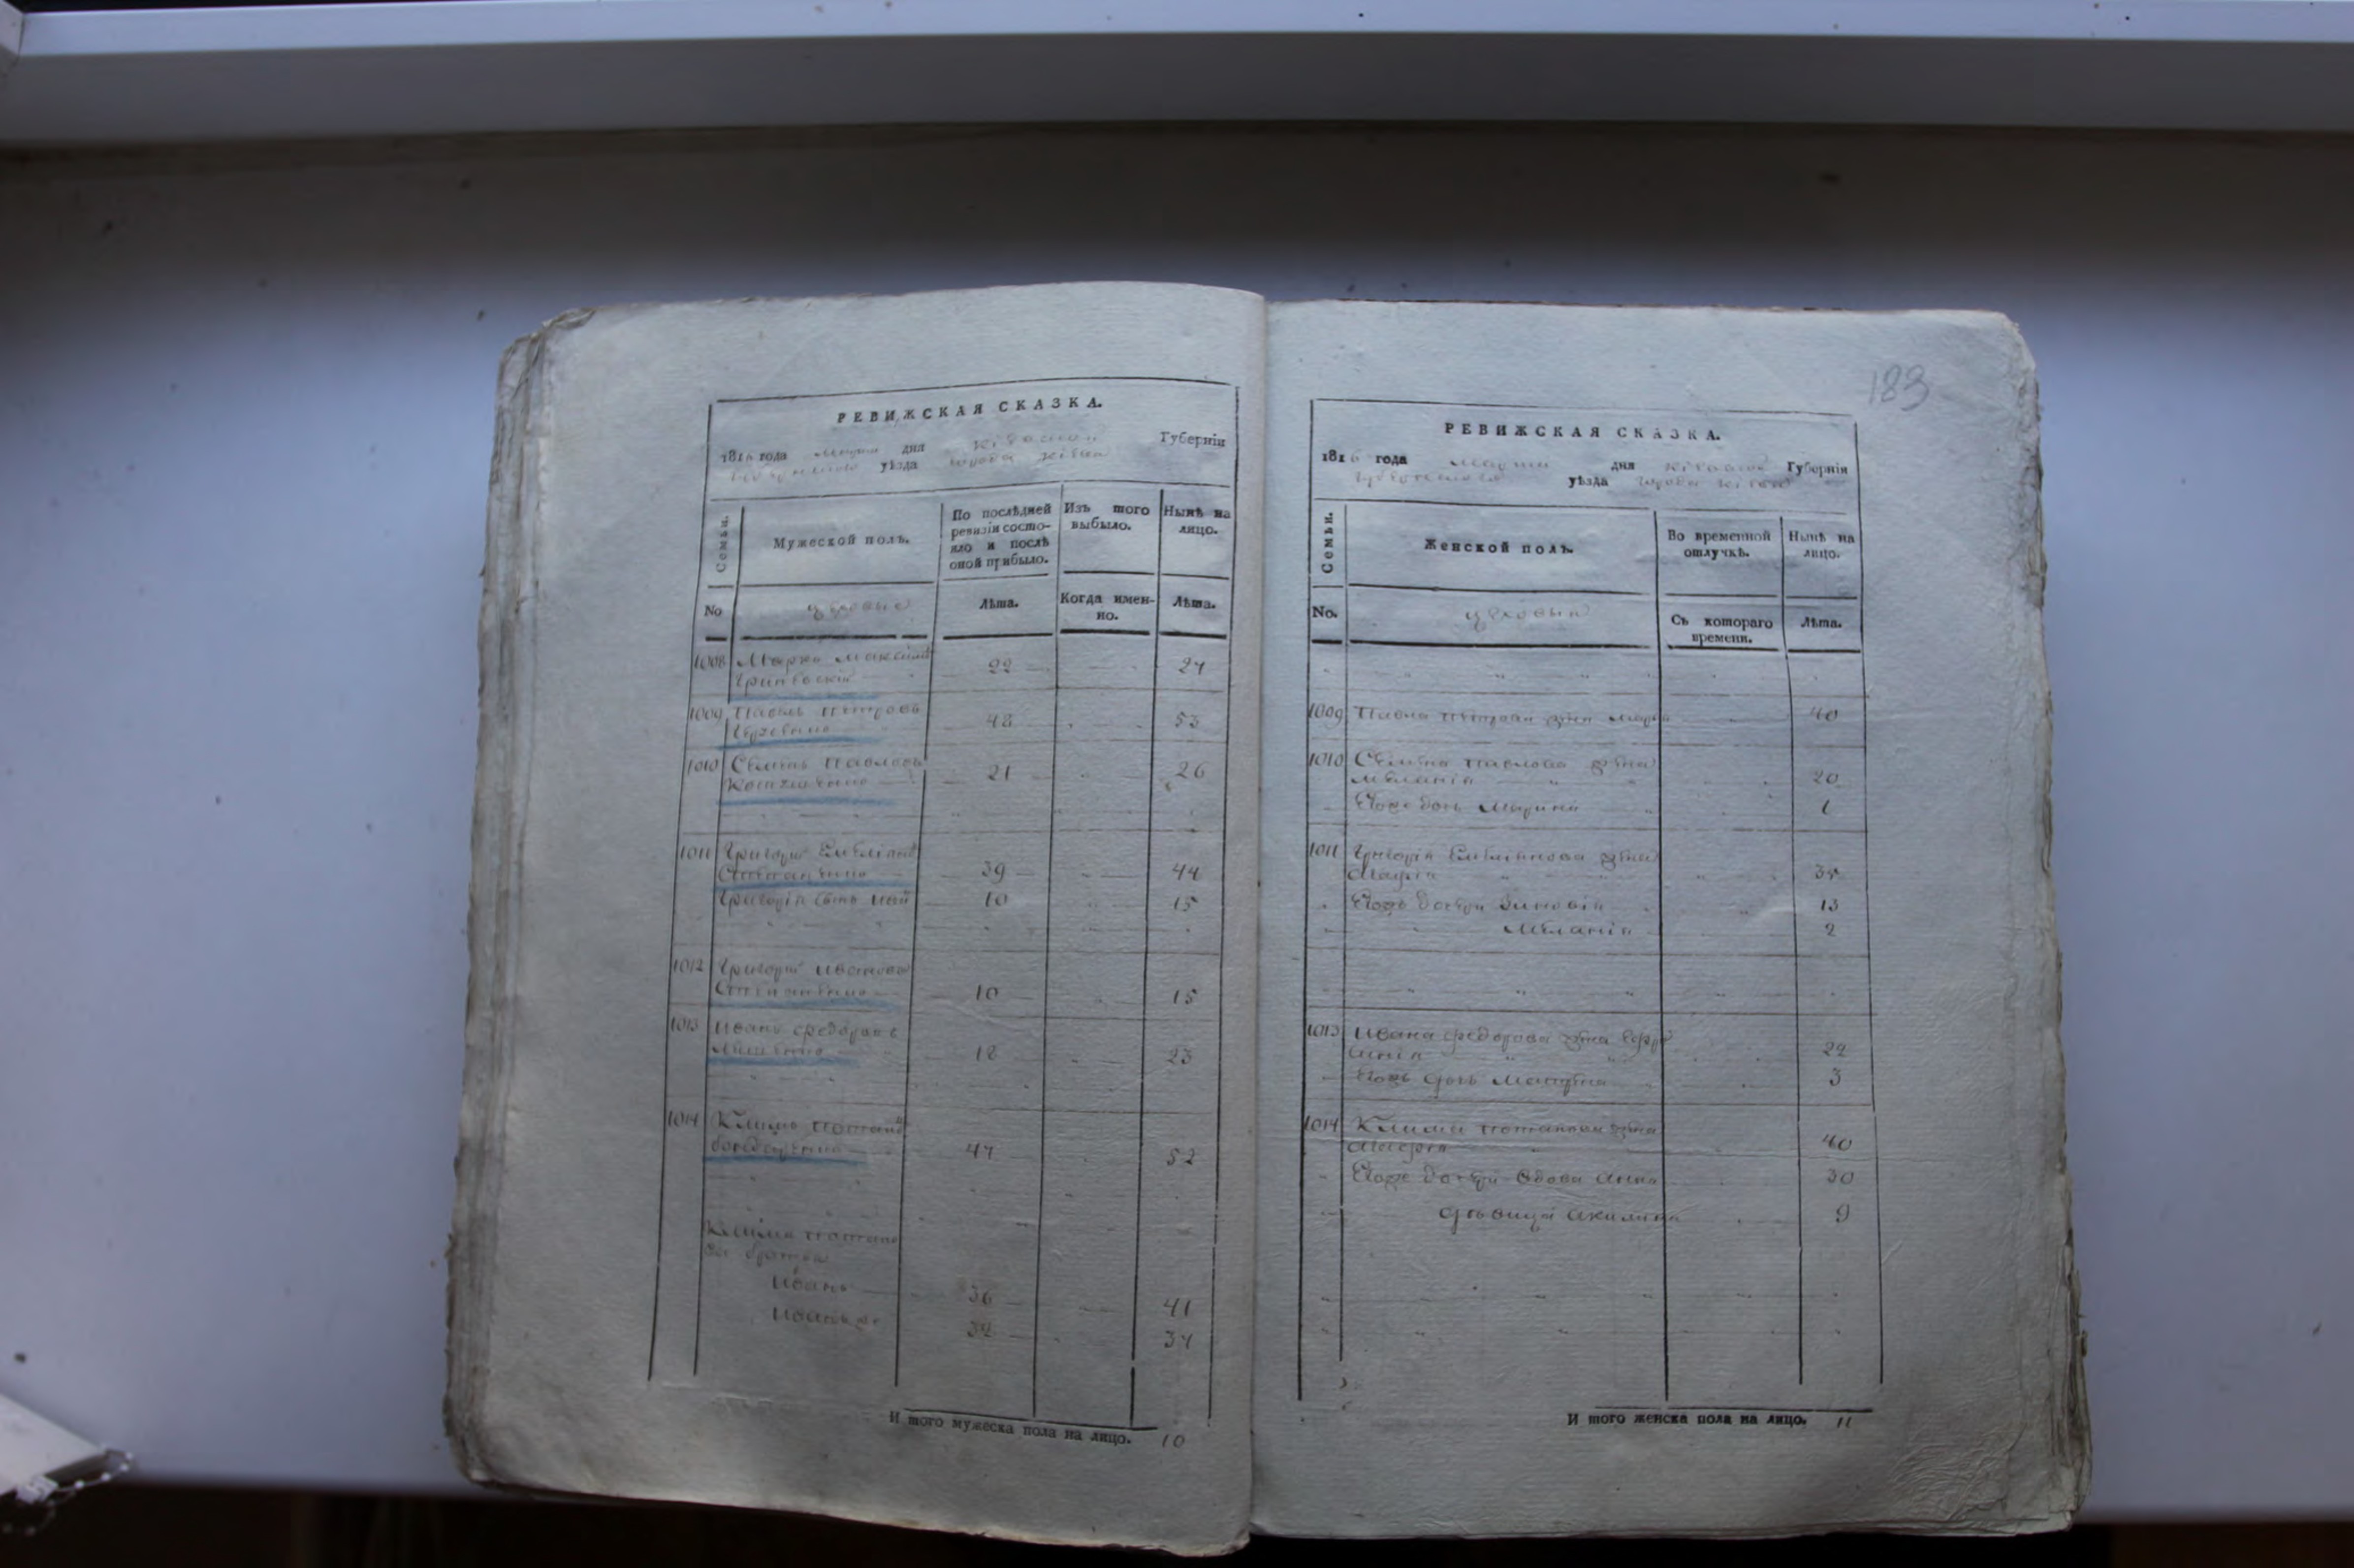 РЕВИЖСКАЯ СКАЗКА.
1816 года Марта дня Кіевской Губерніи
уѣзда города Кіева
Семьи.
Мужеской полъ.
По послѣдней ревизіи состояло и послѣ оной прибыло.
Изъ того выбыло.
Нынѣ на лицо.
No
цеховые
Лѣта.
Когда именно.
Лѣта.
1008 Марко Максимовъ
22 27
1009 Павелъ Петровъ
48 53
1010 Семенъ Павловъ
21 26
1011 Григорій Емельяновъ
Степаненко 39 44
Григорія сынъ 10 15
1012 Григорій Ивановъ
Степаненко 10 15
1013 Иванъ Федоровъ
18 23
1014 Климъ Потаповъ
Бондаренко 47 52
Клима Потапова братья
Иванъ 36 41
Иванъ же 32 37
И того мужеска пола на лицо. 10
183
РЕВИЖСКАЯ СКАЗКА.
1816 года Марта дня Кіевской Губерніи
уѣзда города Кіева
Семьи.
Женской полъ.
Во временной отлучкѣ.
Нынѣ на лицо.
No.
цеховыя
Съ котораго времени.
Лѣта.
1009 Павла Петрова жена Марія 40
1010 Семена Павлова жена
Меланія 20
Егоже дочь Марина 1
1011 Григорія Емельянова жена
Марія 35
Егожъ дочери Зиновія 13
Меланія 2
1013 Ивана Федорова жена Ефро
синія 22
Егожъ дочь 3
1014 Клима Потапова жена
40
Егоже дочери вдова Анна 30
дѣвица Акилина 9
И того женска пола на лицо. 11